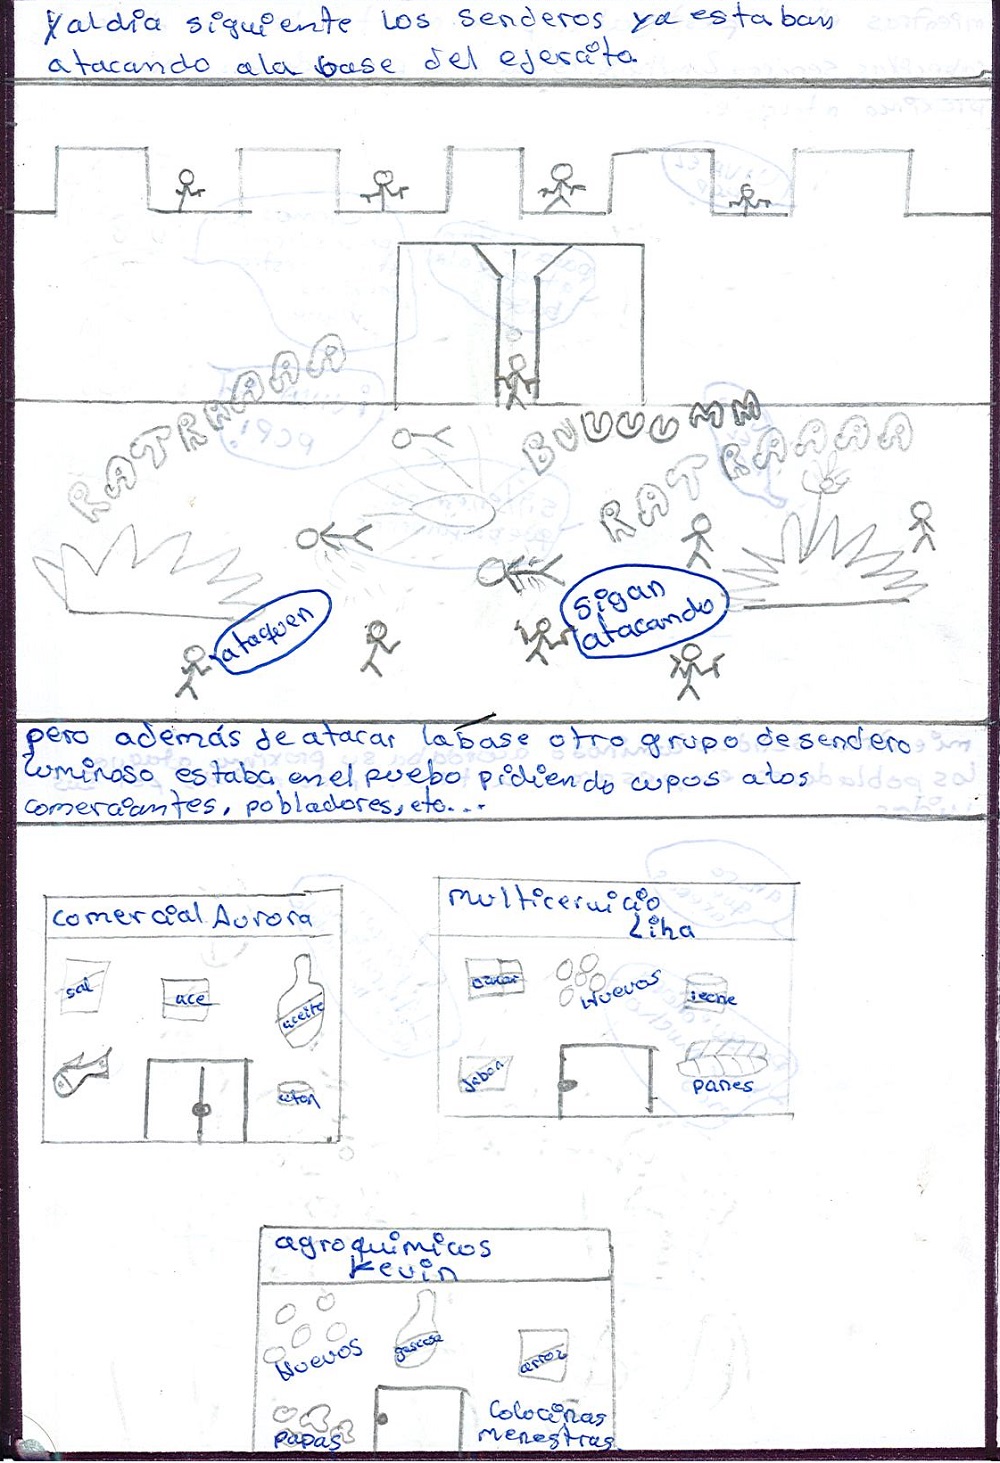 Yaldia siguiente Los senderos ya estaban
atacando ala base del ejercito.
RATRAAAAA
BUUUUMM
RATRAAAAA
ataquen
sigan
atacando
pero además de atacar la base otro grupo de sendero
luminoso estaba en el puebo pidiendo cupos a los
comerciantes, pobladores, etc...
comercial Aurora
sal
ace
aceite
multiceruicio
Liha
azucar
Huevos
leche
Jabon
panes
agroquimicos
Kevin
Huevos
gaseosa
arroz
papas
Golocinas
menestras